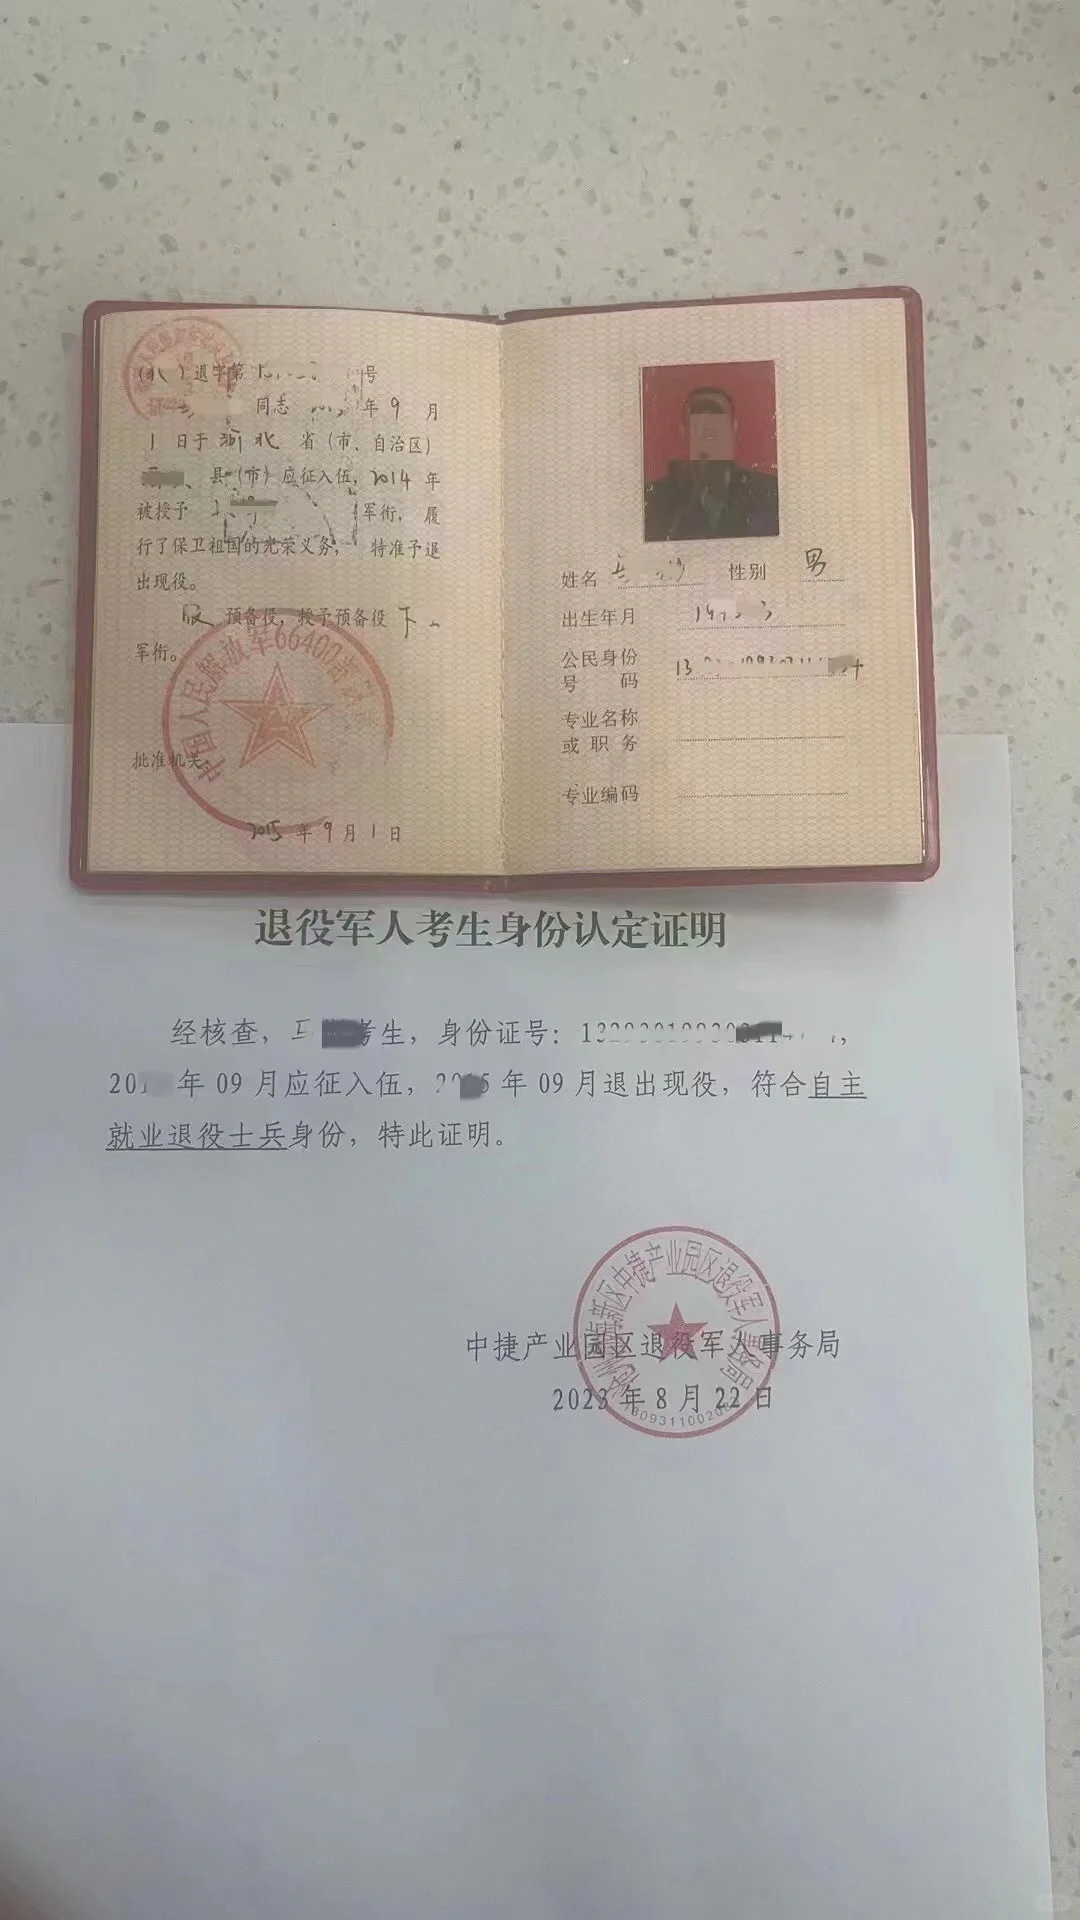 退字第 号
同志 年 9 月
1 日于 河北 省（市、自治区）
县（市）应征入伍，2014 年
被授予 军衔，履
行了保卫祖国的光荣义务， 特准予退
出现役。
服 预备役，授予预备役 下
军衔。
中国人民解放军66400部队
批准机关：
2015 年 9 月 1 日
姓名 性别 男
出生年月
公民身份
号 码
专业名称
或 职 务
专业编码
退役军人考生身份认定证明
经核查， 考生，身份证号：
20 年 09 月应征入伍， 年 09 月退出现役，符合自主
就业退役士兵身份，特此证明。
中捷产业园区退役军人事务局
2023 年 8 月 22 日